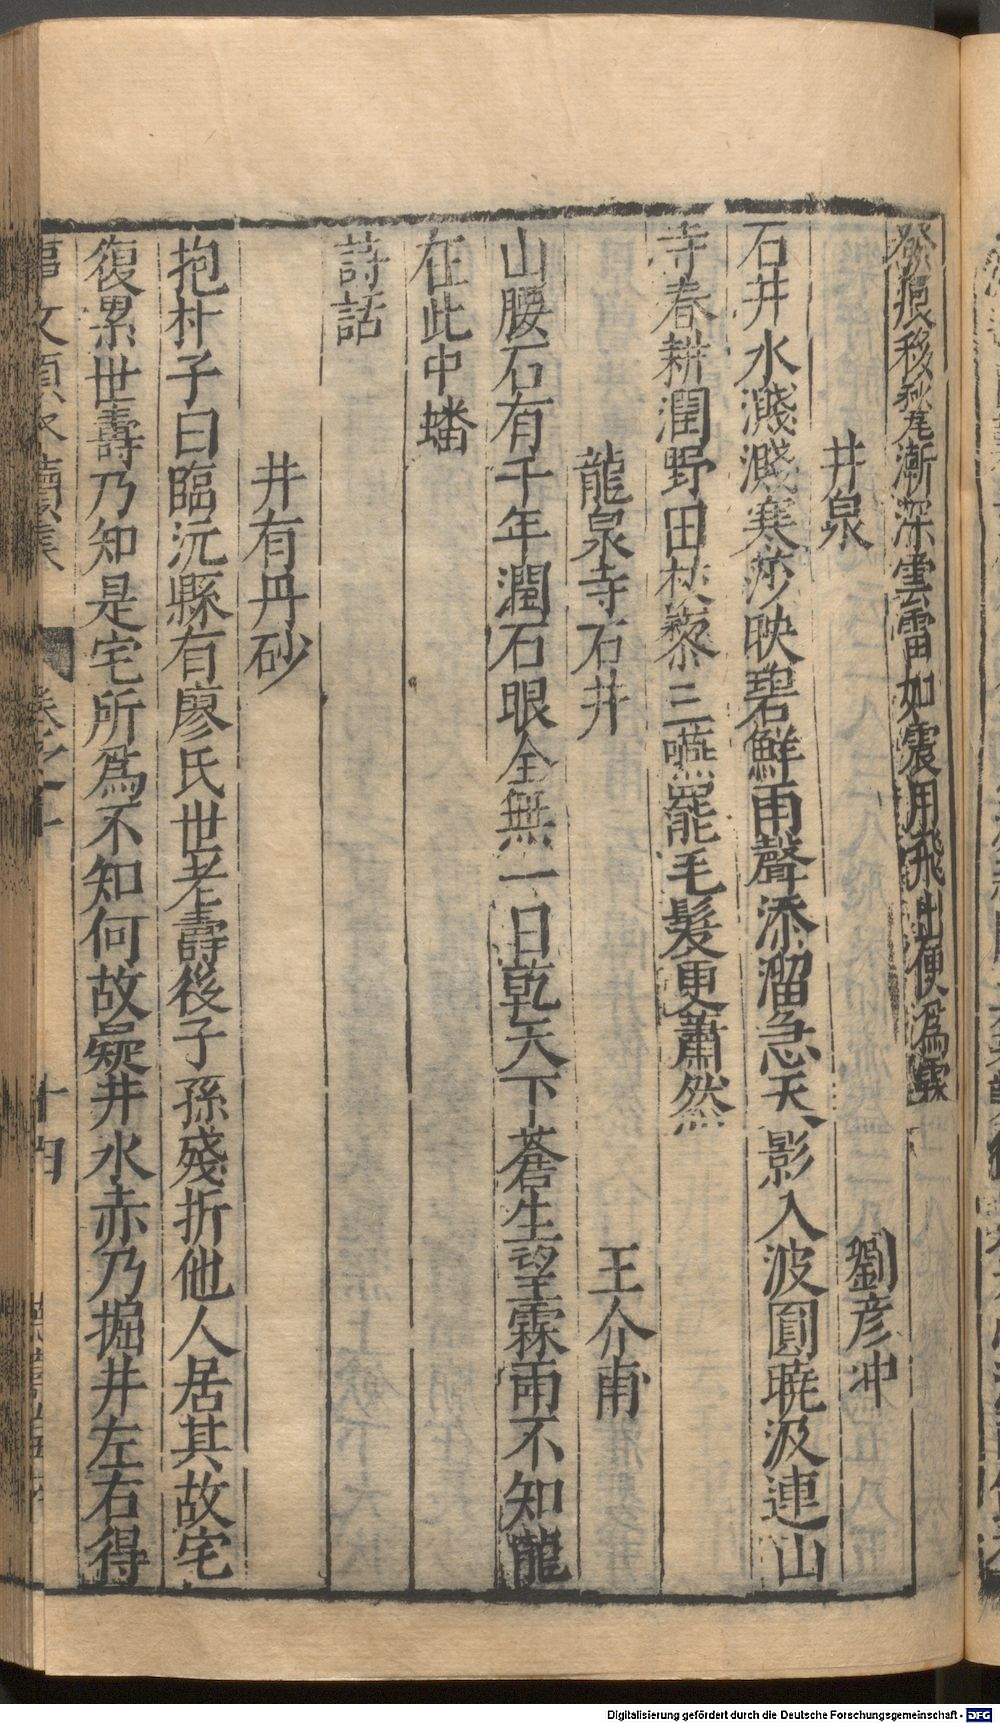 發痕移秋尾漸深雲雷如震用飛出便爲霖
井泉　劉彥冲
石井水濺濺寒莎映碧鮮雨聲添溜急天影入波圓曉汲連山
寺春耕潤野田杖藜三嚥罷毛髮更蕭然
龍泉寺石井　王介甫
山腰石有千年潤石眼全無一日乾天下蒼生望霖雨不知龍
在此中蟠
詩話
井有丹砂
抱朴子曰臨沅縣有廖氏世老壽後子孫殘折他人居其故宅
復累世壽乃知是宅所爲不知何故疑井水赤乃掘井左右得
事文類聚續集　卷之十　十四
Digitalisierung gefördert durch die Deutsche Forschungsgemeinschaft - DFG